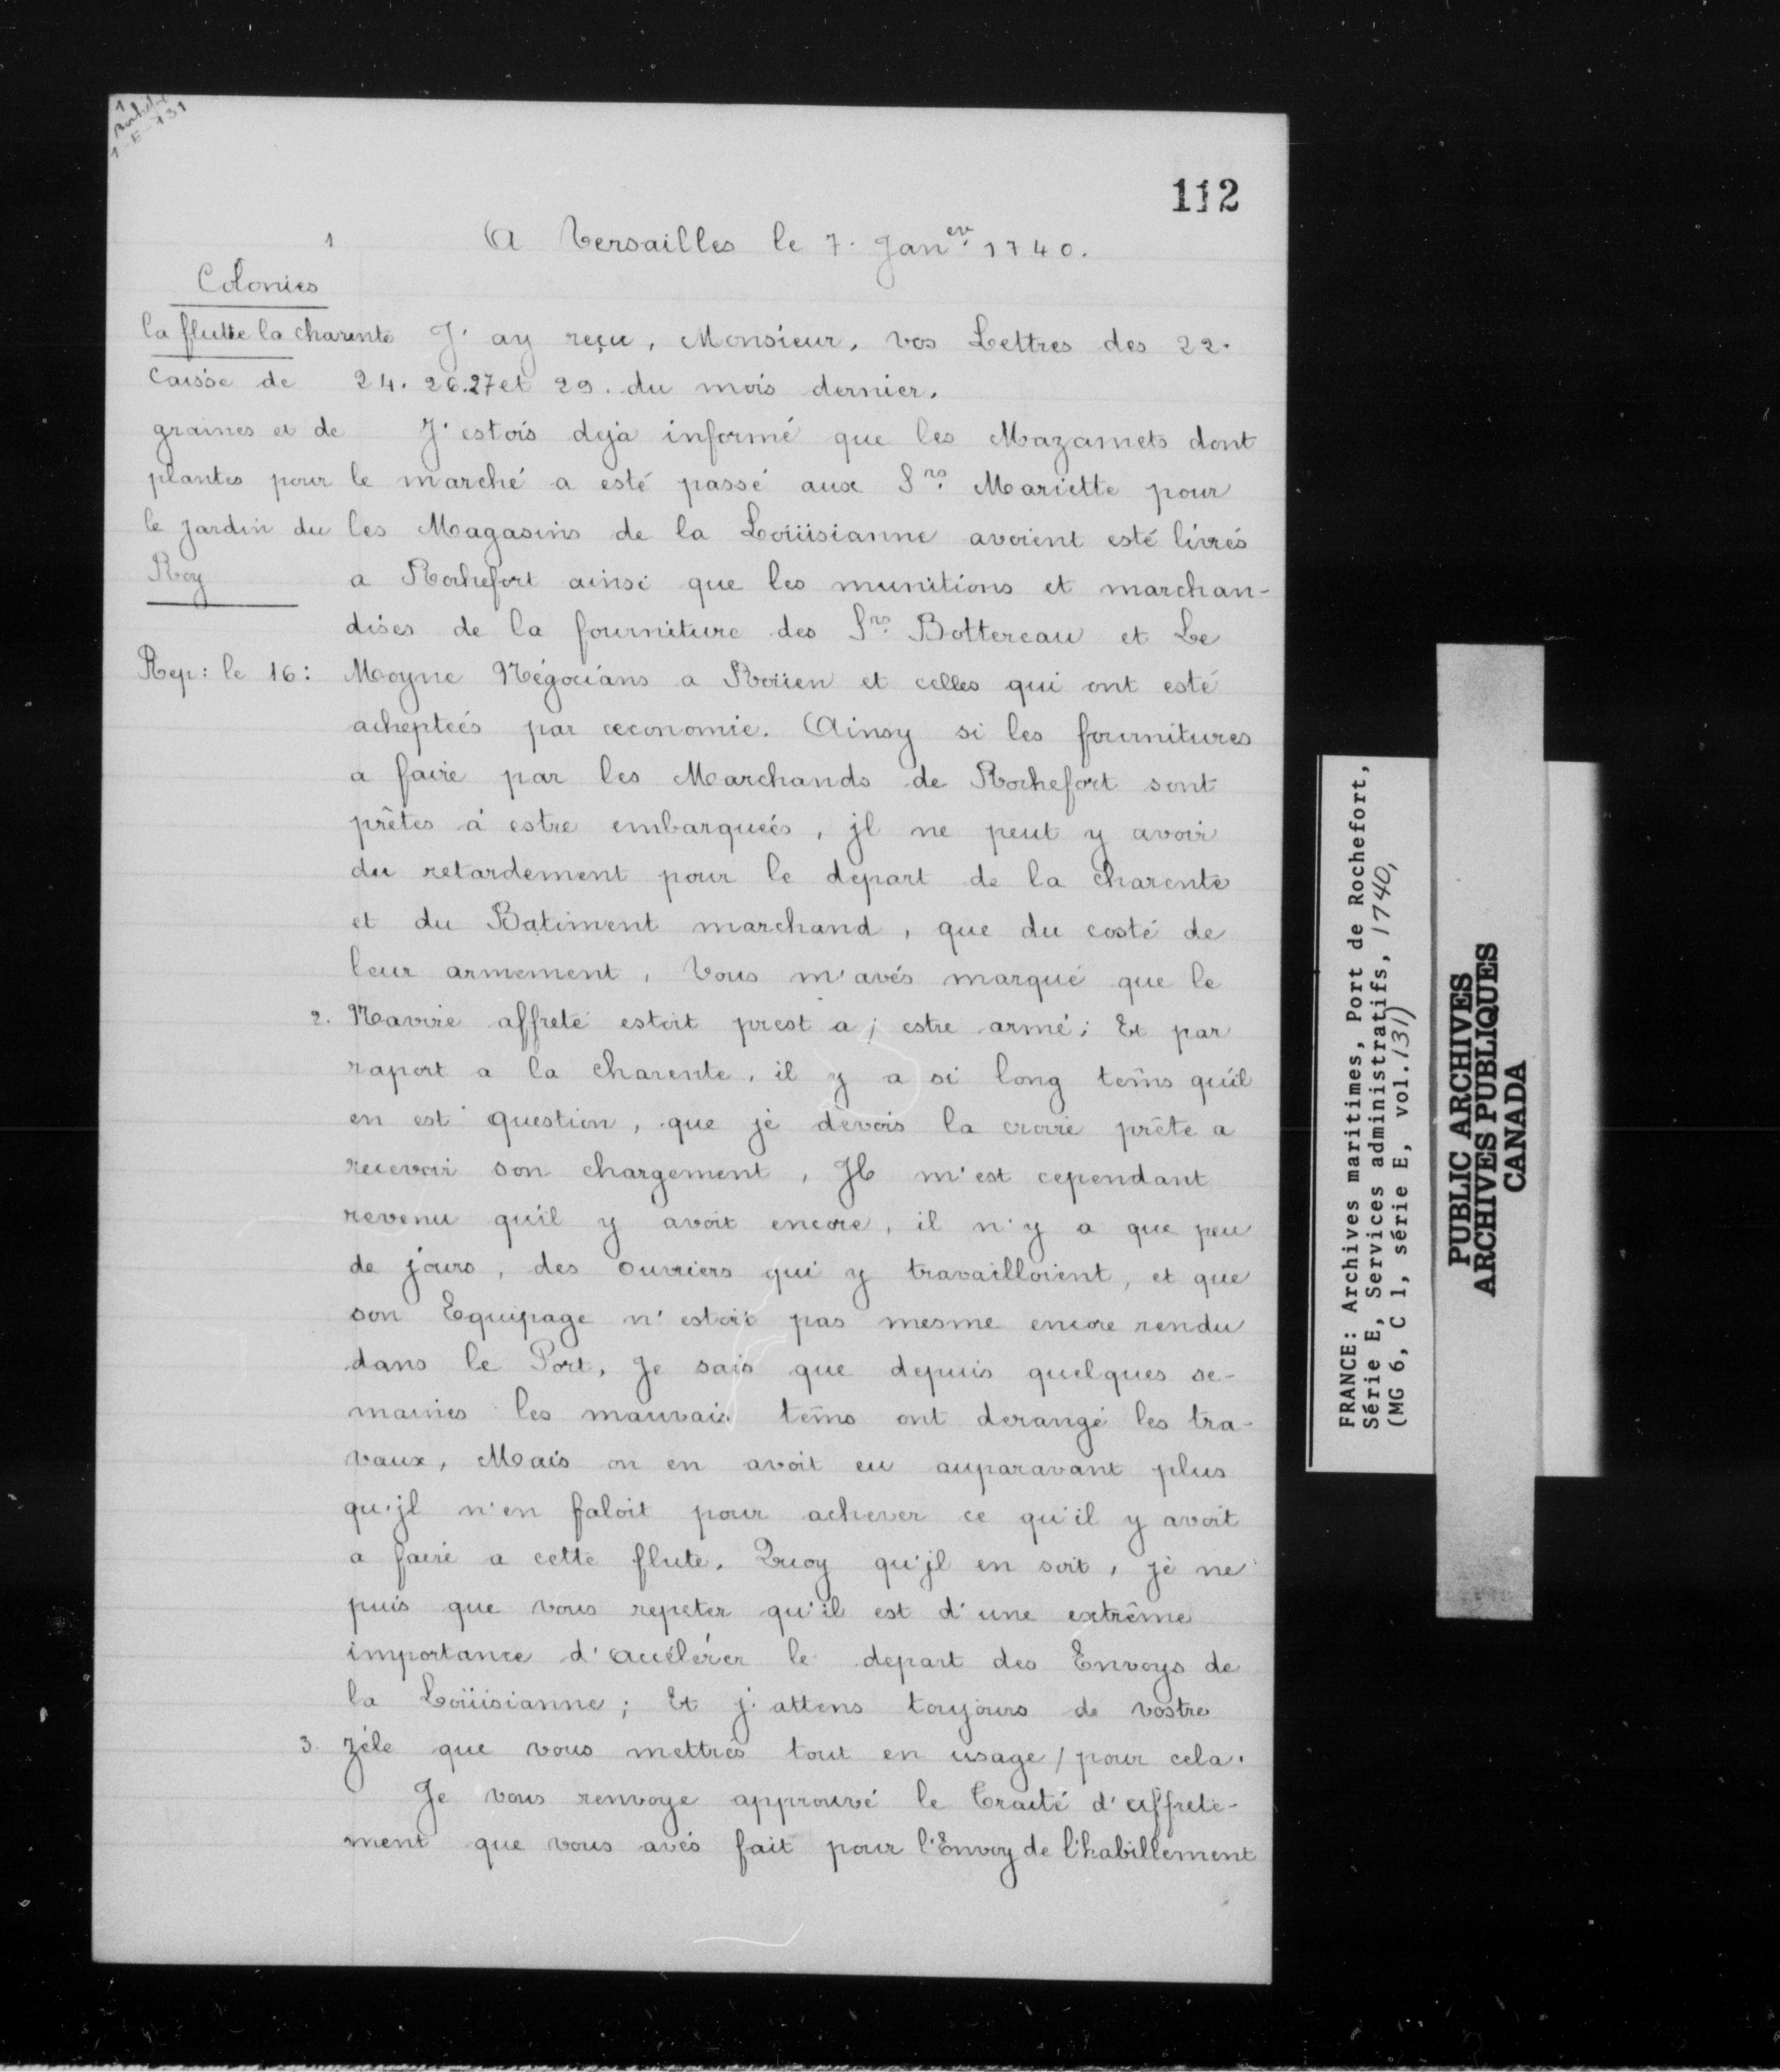 1
Rochefort
1-E-131
112
1 A Versailles le 7. Janer. 1740.
Colonies
la flutte la charente
Caisse de
graines et de
plantes pour
le jardin du
Roy
Rep: le 16:
J'ay reçu, Monsieur, vos Lettres des 22.
24. 26. 27 et 29. du mois dernier.
J'estois deja informé que les Mazamets dont
le marché a esté passé aux Srs. Mariette pour
les Magasins de la Loüisianne avoient esté livrés
a Rochefort ainsi que les munitions et marchan-
dises de la fourniture des Srs. Bottereau et Le
Moyne Négocians a Roüen et celles qui ont esté
acheptées par œconomie. Ainsy si les fournitures
a faire par les Marchands de Rochefort sont
prêtes à estre embarquées, jl ne peut y avoir
du retardement pour le depart de la charente
et du Batiment marchand, que du costé de
leur armement, Vous m'avés marqué que le
2. Navire affreté estoit prest a / estre armé; Et par
raport a la charente, il y a si long tem̃s qu'il
en est question, que je devois la croire prête a
recevoir son chargement, Jl m'est cependant
revenu qu'il y avoit encore, il n'y a que peu
de jours, des ouvriers qui y travailloient, et que
son Equipage n'estoit pas mesme encore rendu
dans le Port, Je sais que depuis quelques se-
maines les mauvais tem̃s ont derangé les tra-
vaux, Mais on en avoit eu auparavant plus
qu'jl n'en faloit pour achever ce qu'il y avoit
a faire a cette flute. Quoy qu'jl en soit, je ne
puis que vous repeter qu'il est d'une extrême
importance d'accélérer le depart des Envoys de
la Loüisianne; Et j'attens toujours de vostre
3. zéle que vous mettrés tout en usage / pour cela.
Je vous renvoye approuvé le Traité d'affrete-
ment que vous avés fait pour l'Envoy de l'habillement
FRANCE: Archives maritimes, Port de Rochefort,
Série E, Services administratifs, 1740,
(MG 6, C 1, série E, vol. 131)
PUBLIC ARCHIVES
ARCHIVES PUBLIQUES
CANADA